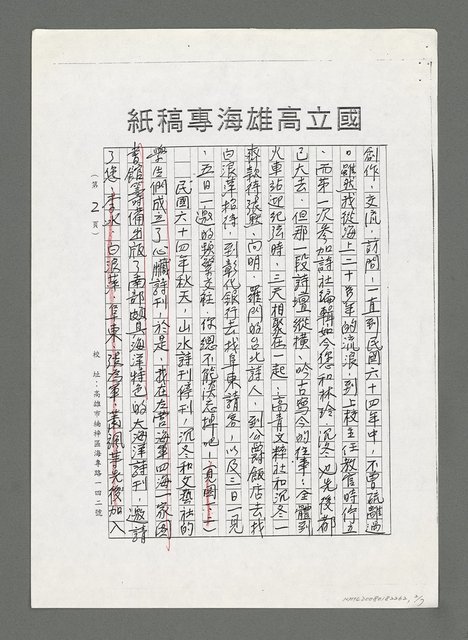 國立高雄海專稿紙
創作,交流,訪問,一直到民國六十四年中,不曾疏離過
。雖然我從海上二十多年的流浪,到上校主任教官時作立
,而第一次參加詩社編輯如今您和林玲、沉冬也先後都
已大去,但那一段詩壇縱橫,吟古論今的往事:全體到
火車站迎紀弦時,三天相聚在一起,高青文粹社和沉冬一
齊款待張默、向明、羅門的台北詩人,到公爵飯店去找
白浪萍招待,到彰化銀行去找阜東請客,以及三日一見
、五日一邀的頻繁交往,你總不能淡忘掉吧!(見圖一)
民國六十四年秋天,山水詩刊停刊,沉冬和文藝社的
學生們成立了心臟詩刊,於是,我在左營海軍四海一家圖
書館籌備出版了南部頗具海洋特色的大海洋詩刊,邀請
了您、李冰、白浪萍、阜東、張為軍、藍海萍先後加入
(第2頁)
校址:高雄市楠梓區海專路一四二號
NMTL20080182262, 2/7